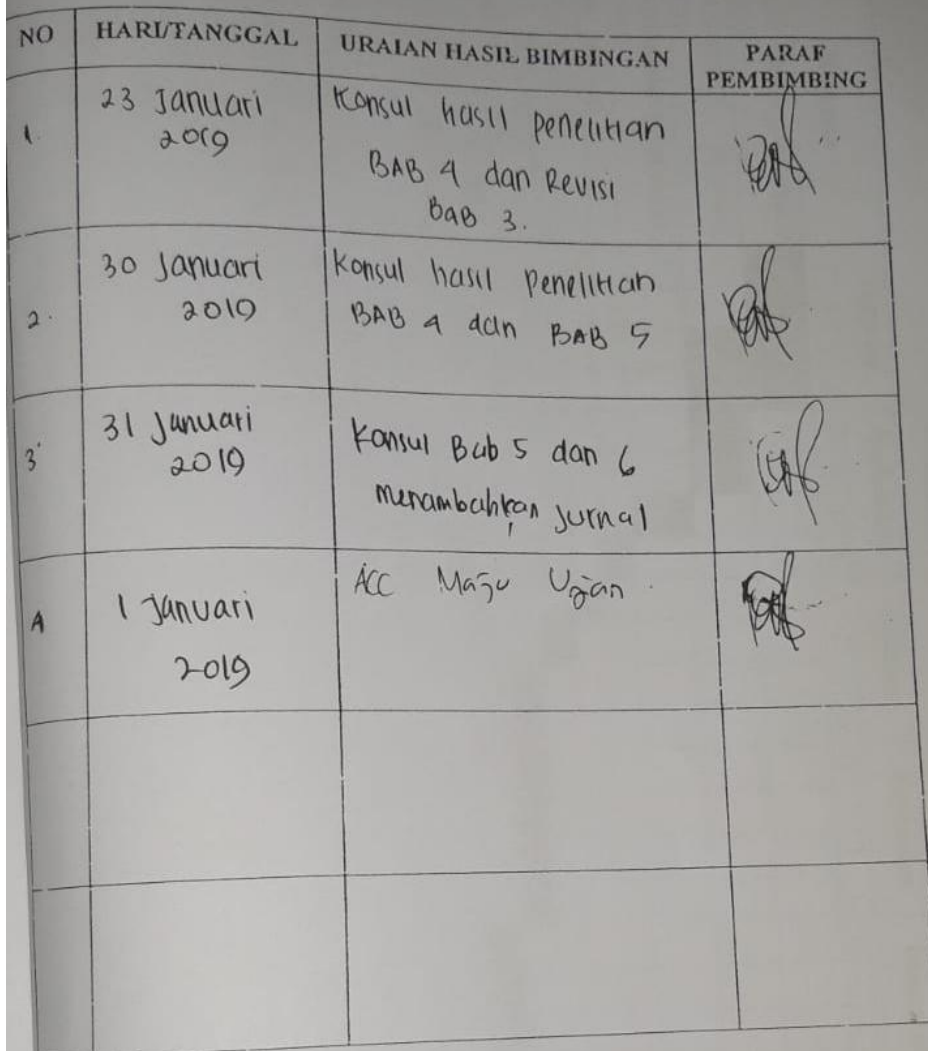 NO HARI/TANGGAL URAIAN HASIL BIMBINGAN PARAF PEMBIMBING
1. 23 Januari 2019 Konsul hasil penelitian
BAB 4 dan Revisi
Bab 3.
2. 30 Januari 2019 Konsul hasil Penelitian
BAB 4 dan BAB 5
3 31 Januari 2019 Konsul Bab 5 dan 6
menambahkan jurnal
4 1 Januari 2019 ACC Maju Ujian